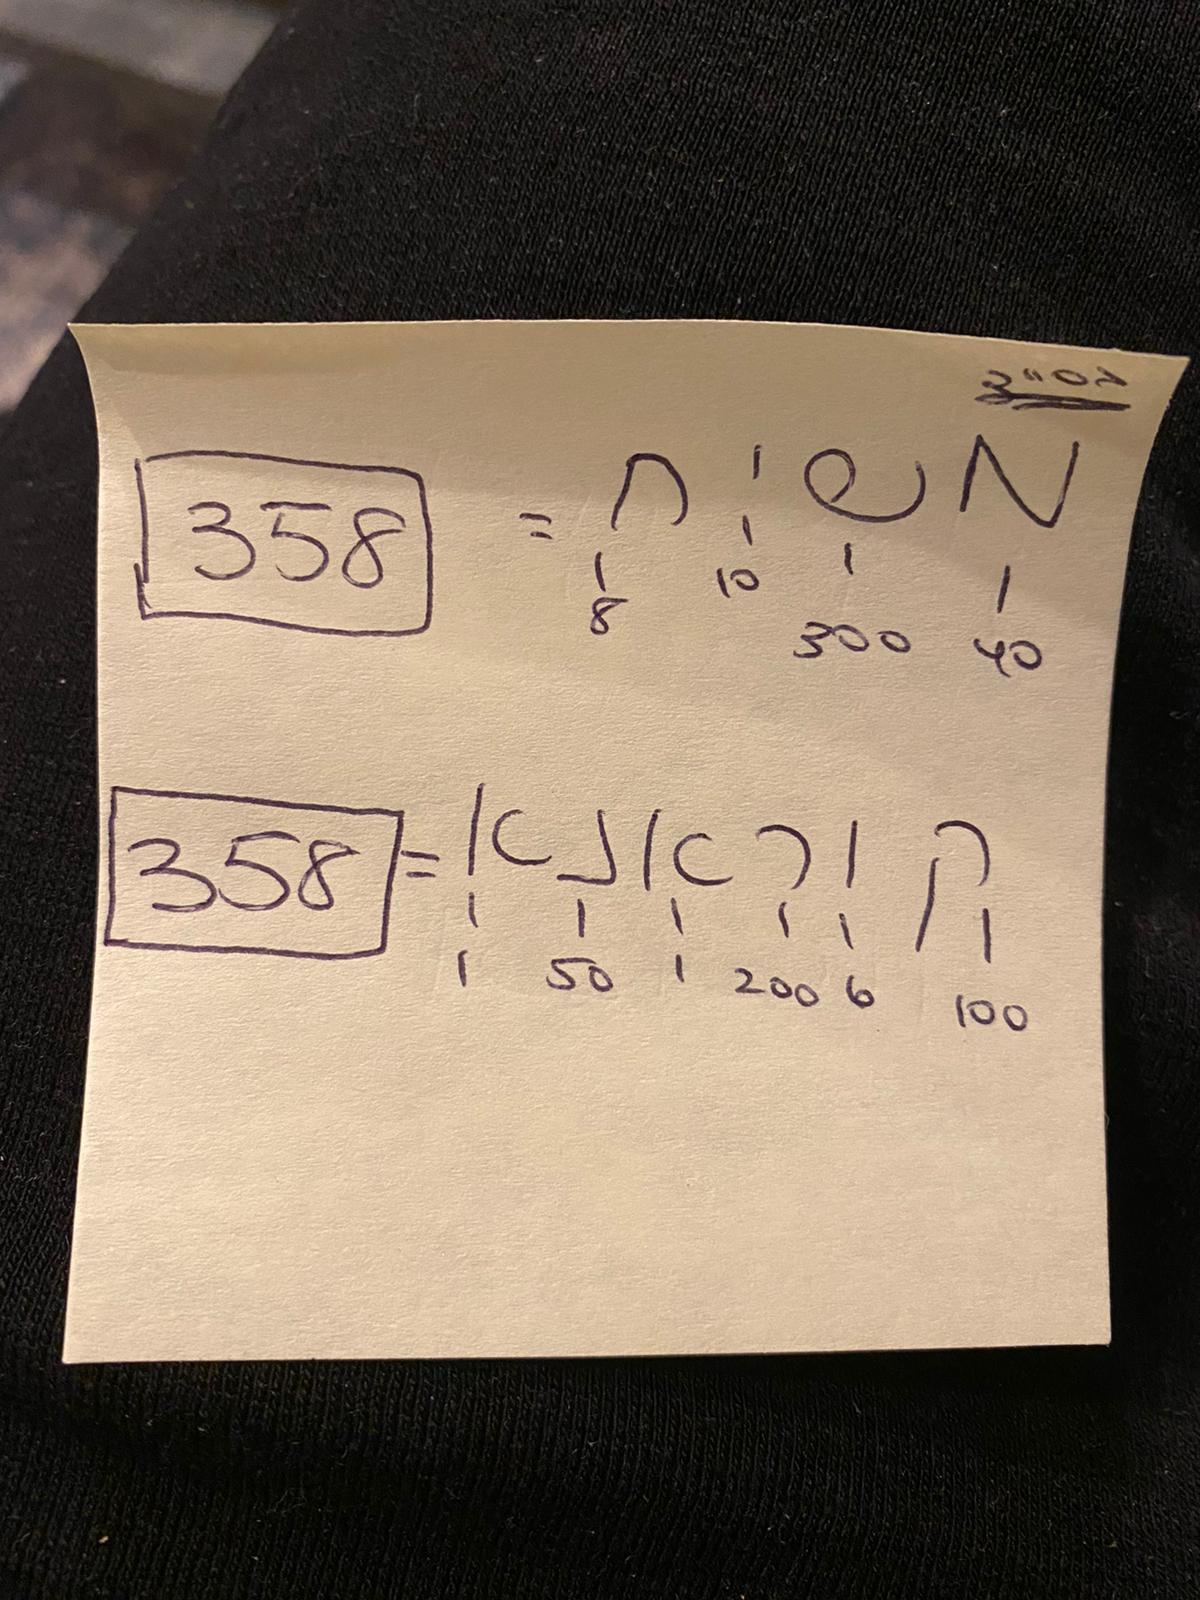 בס"ד
משיח = 358
40 300 10 8
קוראנא = 358
100 6 200 1 50 1